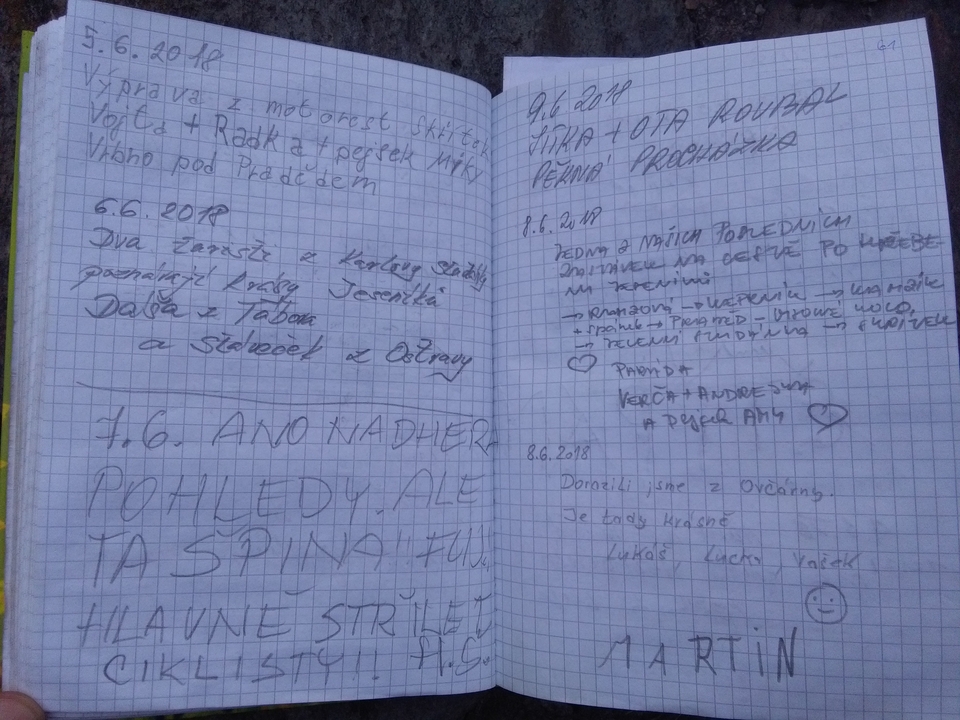 5.6.2018
Výprava z motorest Skřítek
Vojta + Radka + pejsek
Vrbno pod Pradědem
6.6. 2018
Dva z Karlovy
poznávají krásy Jeseníků
Dalša z Tábora
a Sládeček z Ostravy
7.6. ANO NADHER
POHLEDY. ALE
TA ŠPINA!! FUJ!
HLAVNĚ STŘÍLET
CIKLISTY!! A.S.
61
9.6 2018
JITKA + OTA ROUBAL
PĚKNÁ PROCHÁZKA
8.6.2018
JEDNA Z NAŠICH POSLEDNÍCH
ZASTÁVEK NA CESTĚ PO HŘEBE-
→ RAMZOVÁ → → KAMZÍK
+ spánek → PRADĚD -
→
PARÁDA
VERČA + ANDREJKA
A pejsek AMY
8.6.2018
Dorazili jsme z Ovčárny.
Je tady krásně
Lukáš, Lucka, Vašek
MARTiN